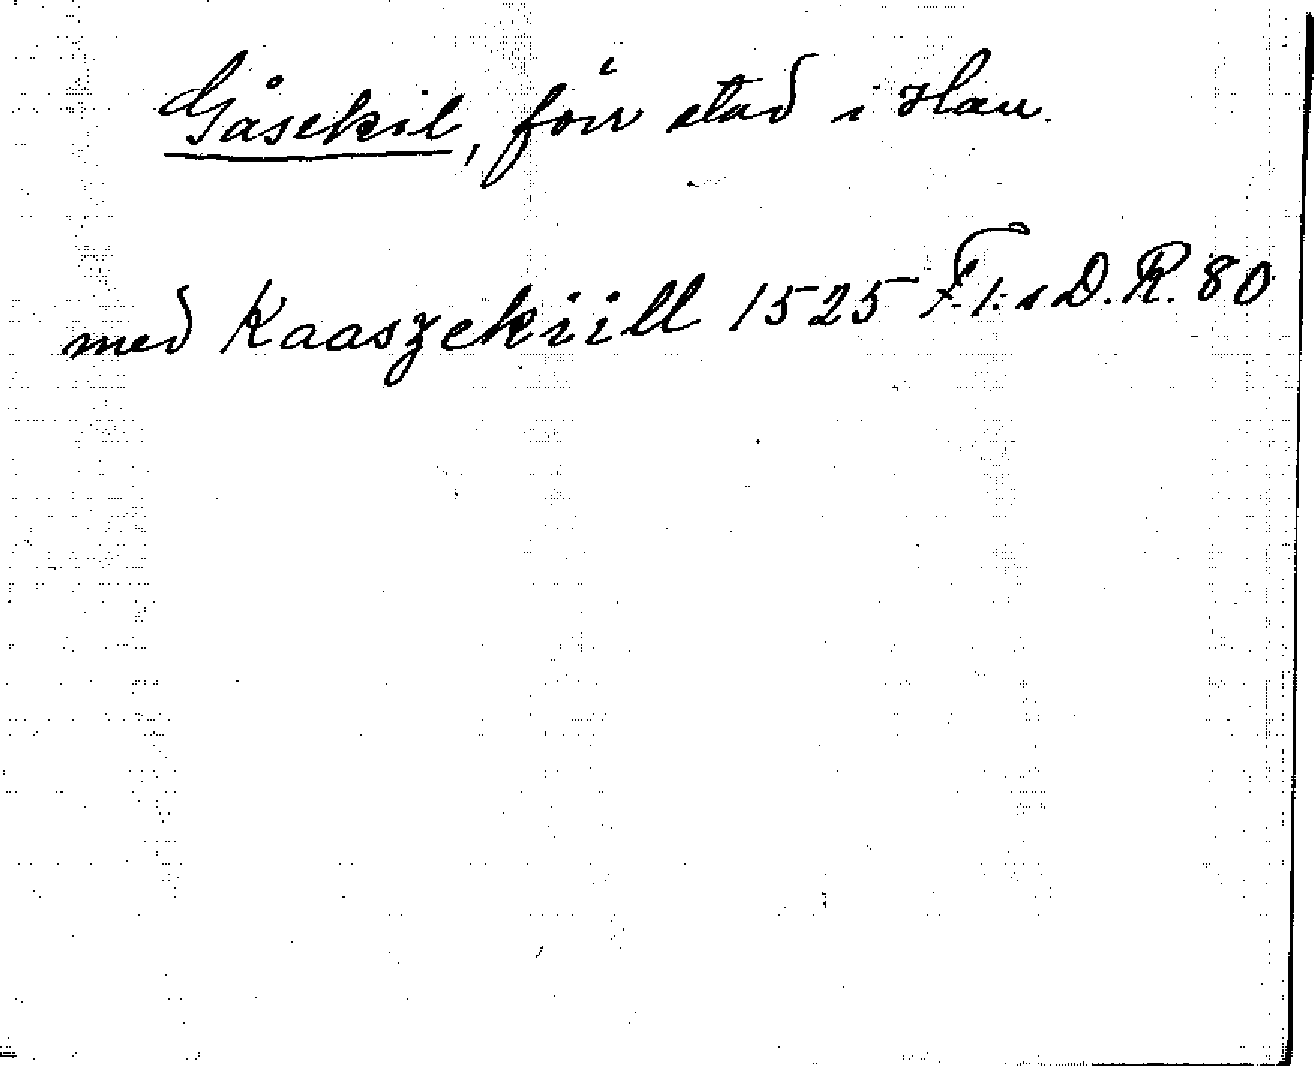 Gåsekil, förr stad i Han.
med Kaaszekiill 1525 F.1:s D.R. 80